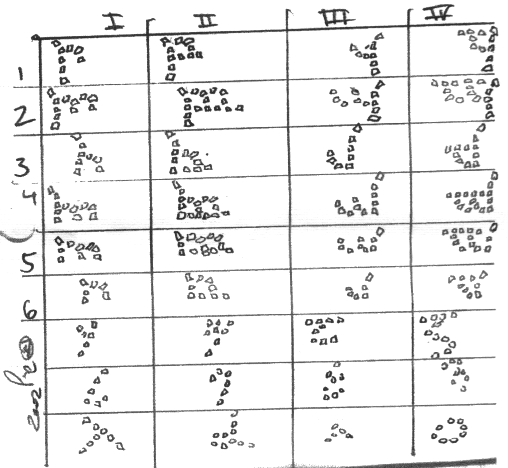 I II III IV
1
2
3
4
5
6